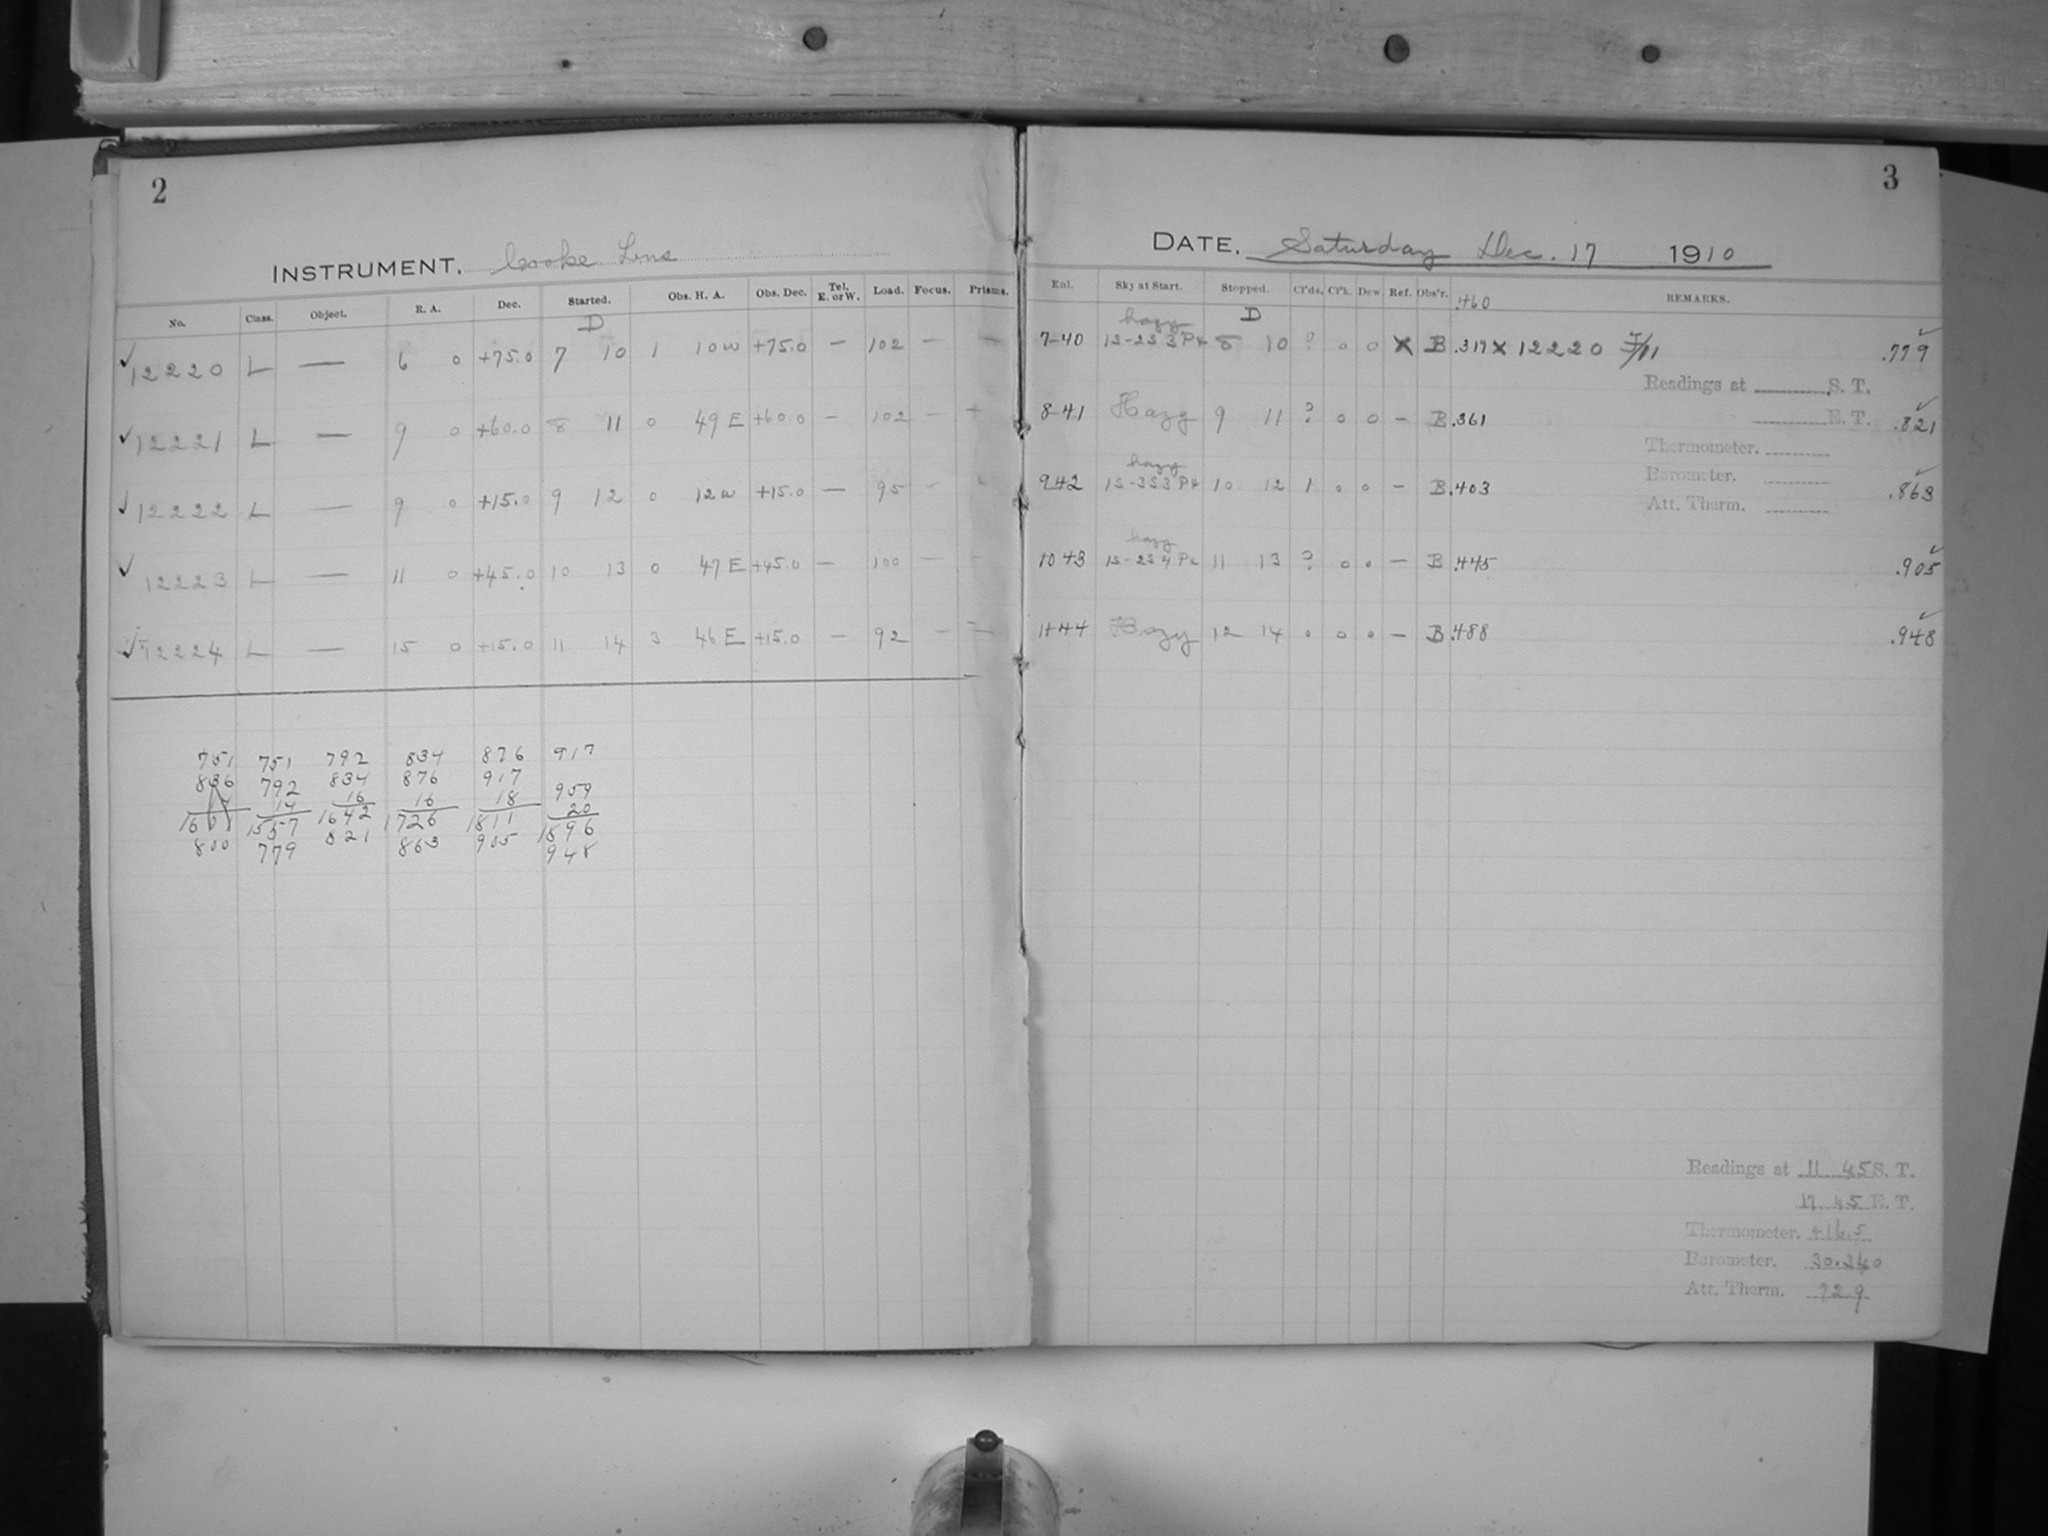 2
INSTRUMENT. Cooke Lens
No. Class. Object. R. A. Dec. Started. Obs. H. A. Obs. Dec. Tel. E. or W. Load. Focus. Prisms.
D
✓ 12220 L — 6 0 +75.0 7 10 1 10 W +75.0 — 102 — —
✓ 12221 L — 9 0 +60.0 8 11 0 49 E +60.0 — 102 —
✓ 12222 L — 9 0 +15.0 9 12 0 12 W +15.0 — 95 —
✓ 12223 L — 11 0 +45.0 10 13 0 47 E +45.0 — 100 — —
✓ 12224 L — 15 0 +15.0 11 14 3 46 E +15.0 — 92 — —
751 751 792 834 876 917
836 792 834 876 917 959
14 14 16 16 18 20
1557 1642 1726 1811 1896
800 779 821 863 905 948
3
DATE. Saturday Dec. 17 1910
Enl. Sky at Start. Stopped. Cl'ds. Cl'k. Dew. Ref. Obs'r. .460 REMARKS.
hazy D
7-40 1S-2S 3 Px 8 10 ? 0 0 X B .317 X 12220 .779 ✓
Readings at S. T.
8-41 Hazy 9 11 ? 0 0 — B .361 E. T. .821 ✓
Thermometer.
hazy
9 42 1S-3S 3 Px 10 12 1 0 0 — B .403 Barometer. .863 ✓
Att. Therm.
hazy
10 43 1S-2S 4 Px 11 13 ? 0 0 — B .445 .905 ✓
11 44 Hazy 12 14 0 0 0 — B .488 .948 ✓
Readings at 11 45 S. T.
17 45 E. T.
Thermometer. +16.5
Barometer. 30.340
Att. Therm. 72.9